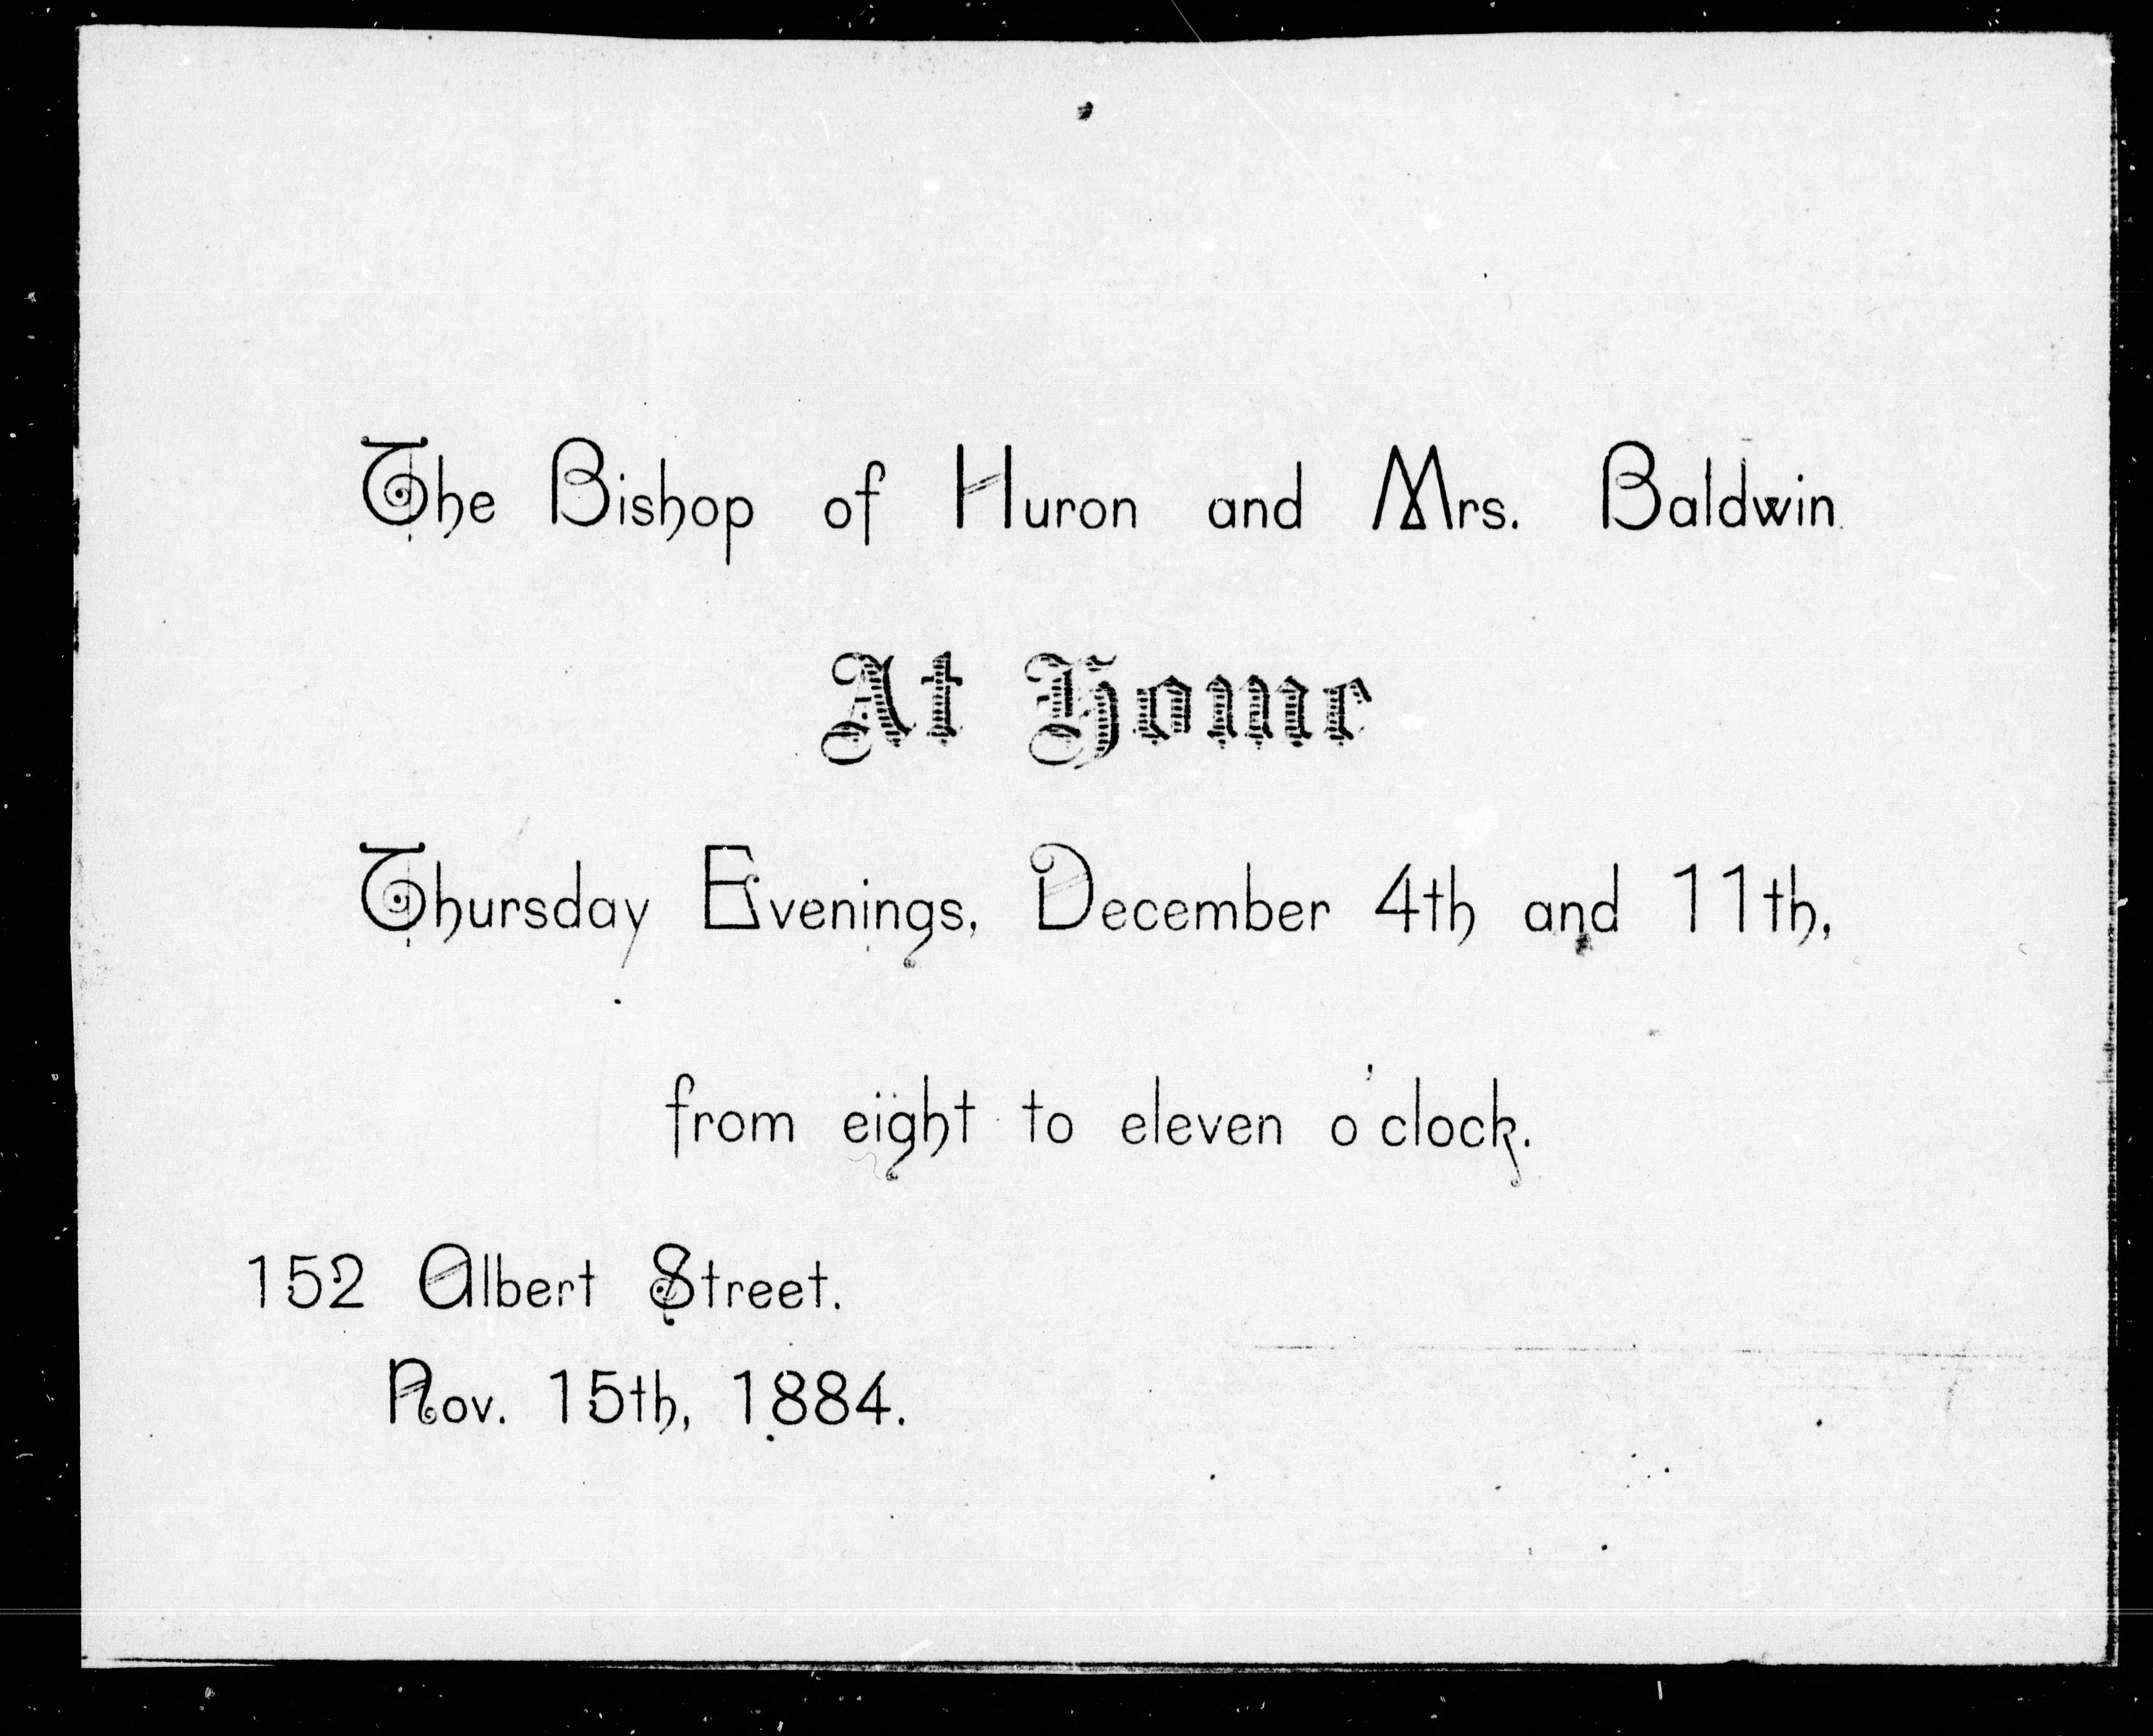 The Bishop of Huron and Mrs. Baldwin
At Home
Thursday Evenings, December 4th and 11th,
from eight to eleven o'clock.
152 Albert Street.
Nov. 15th, 1884.